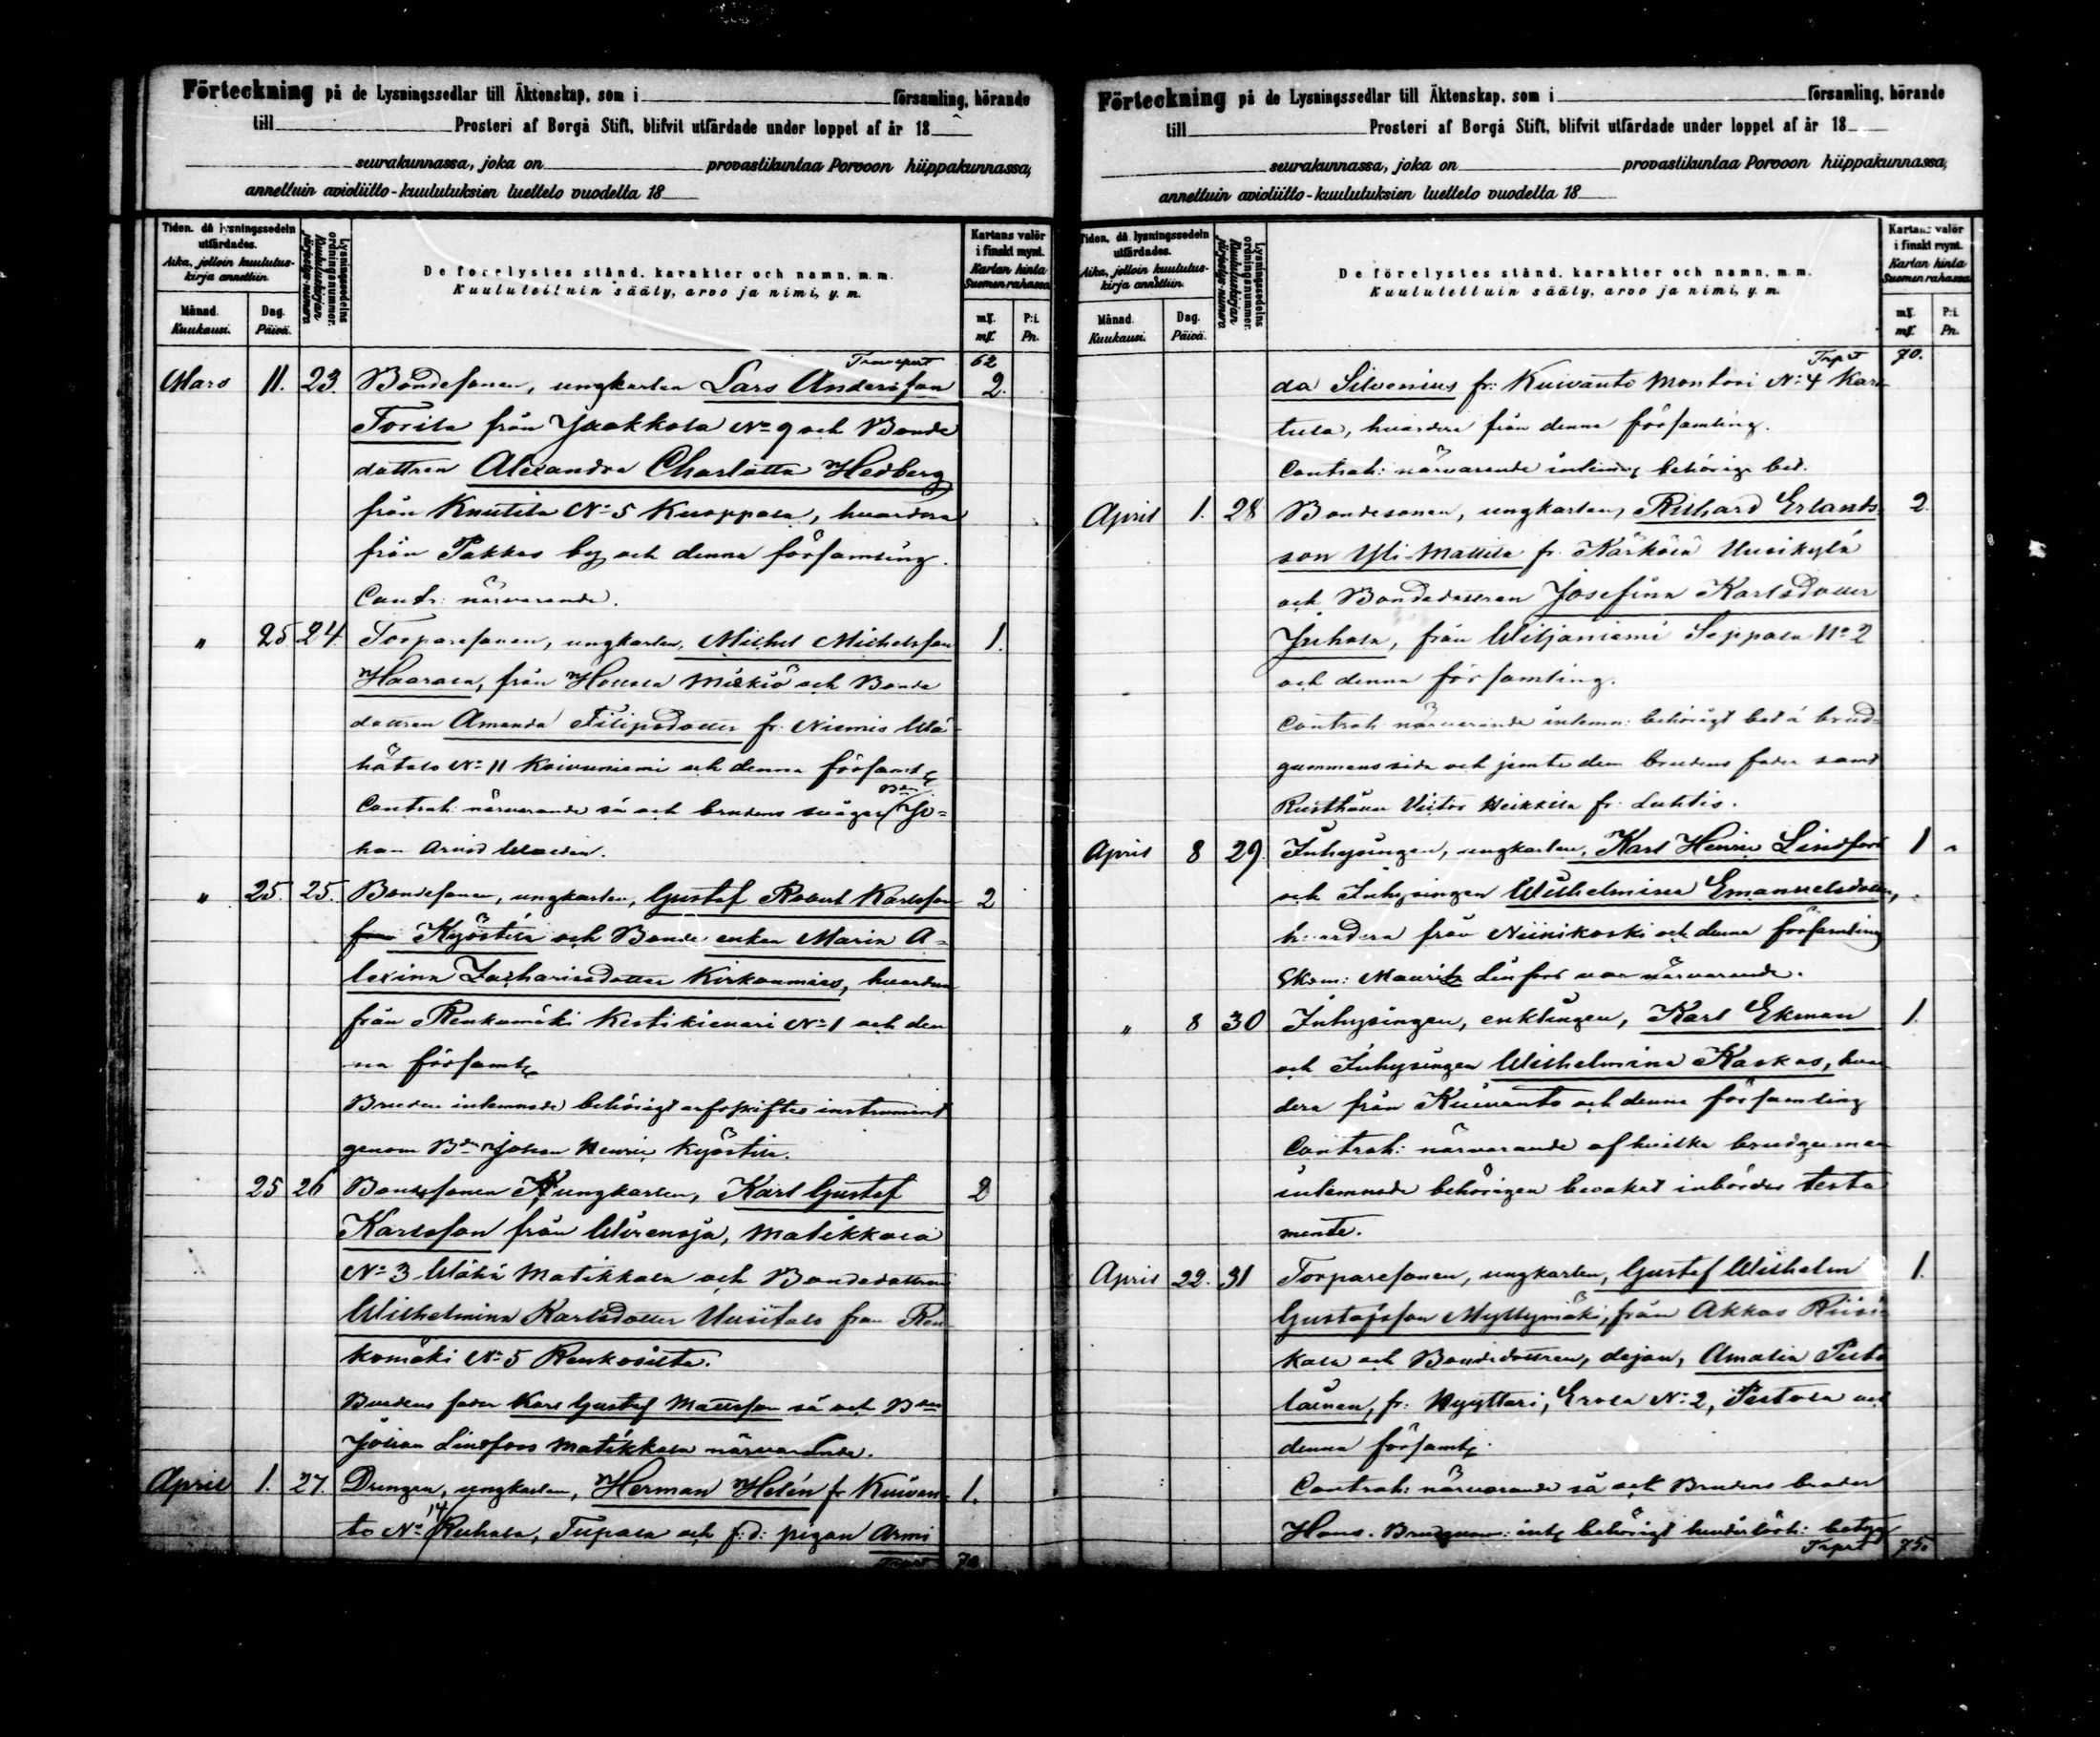 Förteckning på de Lysningssedlar till Äktenskap, som i församling, hörande
till Prosteri af Borgå Stift, blifvit utfärdade under loppet af år 18
seurakunnassa, joka on provastikuntaa Porvoon hiippakunnassa,
annettuin avioliitto-kuulutuksien luettelo vuodelta 18
Tiden, då lysningssedeln utfärdades.
Aika, jolloin kuulutus-kirja annettiin.
Lysningssedelns ordningsnummer.
Kuulutuskirjan järjestys-numero
De förelystes stånd, karakter och namn, m. m.
Kuulutettuin sääly, arvo ja nimi, y. m.
Kartans valör i finskt mynt.
Kartan hinta Suomen rahassa
Månad. Dag. mk. P:i.
Kuukausi. Päivä. mk. Pn.
Transport 62
Mars 11. 23. Bondesonen, ungkarlen Lars Andersson 2.
Torila från Jaakkola No 9 och Bonde
dottren Alexandra Charlotta Hedberg
från Knutila No 5 Kuoppala, hvardera
från Pakkas by och denna församling.
Contr: närvarande.
" 25 24. Torparesonen, ungkarlen, Michel Michelsson 1.
Haarala, från Hollola Miekiö och Bonde
dottren Amanda Filipsdotter fr: Niemis Wä-
hätalo No 11 Koivuniemi och denna församlg
Contrah: närvarande så och brudens svåger Bdn Jo=
han Arvid
" 25. 25. Bondesonen, ungkarlen, Gustaf Robert Karlsson 2
Kyöstilä och Bonde enkan Maria A=
lexina Zachariasdotter Kirkonmies, hvardera
från Renkomäki Kestikievari No 1 och den
na församlg
Bruden inlemnade behörigt afskiftes instrument
genom Bdn Johan Henric Kyöstilä.
25 26 Bondesonen ungkarlen, Karl Gustaf 2
Karlsson från Wirenoja, Matikkala
No 3 Wähä Matikkala och Bondedottren
Wilhelmina Karlsdotter Uusitalo från Ren-
komäki No 5 Renkosilta.
Brudens fader Karl Gustaf Mattsson så och Bdn
Johan Lindfors Matikkala närvarande.
April 1. 27. Drengen, ungkarlen, Herman Helén fr Kuivan- 1.
to No 14 Ruhala, Tupala och f:d: pigan Armi
Trprt 70.
Förteckning på de Lysningssedlar till Äktenskap, som i församling, hörande
till Prosteri af Borgå Stift, blifvit utfärdade under loppet af år 18
seurakunnassa, joka on provastikuntaa Porvoon hiippakunnassa,
annettuin avioliitto-kuulutuksien luettelo vuodelta 18
Tiden, då lysningssedeln utfärdades.
Aika, jolloin kuulutus-kirja annettiin.
Lysningssedelns ordningsnummer.
Kuulutuskirjan järjestys-numero
De förelystes stånd, karakter och namn, m. m.
Kuulutettuin sääly, arvo ja nimi, y. m.
Kartans valör i finskt mynt.
Kartan hinta Suomen rahassa
Månad. Dag. mk. P:i.
Kuukausi. Päivä. mk. Pn.
Trprt 70.
da Silvenius fr: Kuivanto Montori No 4 Kar-
tula, hvardera från denna församling.
Contrah: närvarande inlemng behörige bet.
April 1. 28 Bondesonen, ungkarlen, Richard Erlands- 2.
son Yli-Mattila fr. Kärkölä Uusikylä
och Bondedottren Josefina Karlsdotter
Juhola, från Wiljaniemi Seppala No 2
och denna församling.
Contrah: närvarande inlemn: behörigt bet å brud=
gummens sida och jemte dem brudens fader samt
Rusthållar Victor Heikkilä fr: Luhtis.
April 8 29. Inhysingen, ungkarlen, Karl Henric Lindfors 1
och Inhysingen Wilhelmina Emanuelsdotter,
hvardera från Niinikoski och denna församling
Ekom: Mauritz Linfors var närvarande.
" 8 30 Inhysingen, enklingen, Karl Ekman 1.
och Inhysingen Wilhelmina Kaskas, hvar
dera från Kuivanto och denna församling
Contrah: närvarande af hvilka brudgumen
inlemnade behörigen bevakat inbördes testa
mente.
April 22. 31 Torparesonen, ungkarlen, Gustaf Wilhelm 1.
Gustafsson Myllymäki, från Akkas Riisi-
kala och Bondedottren, dejan, Amalia Pieto
lainen, fr: Hyyttäri, Erola No 2, Pietola och
denna församlg.
Contrah: närvarande så ock Brudens broder
Hans. Brudgum: inlg behörigt hinderlösh: betyg
Trprt 75.